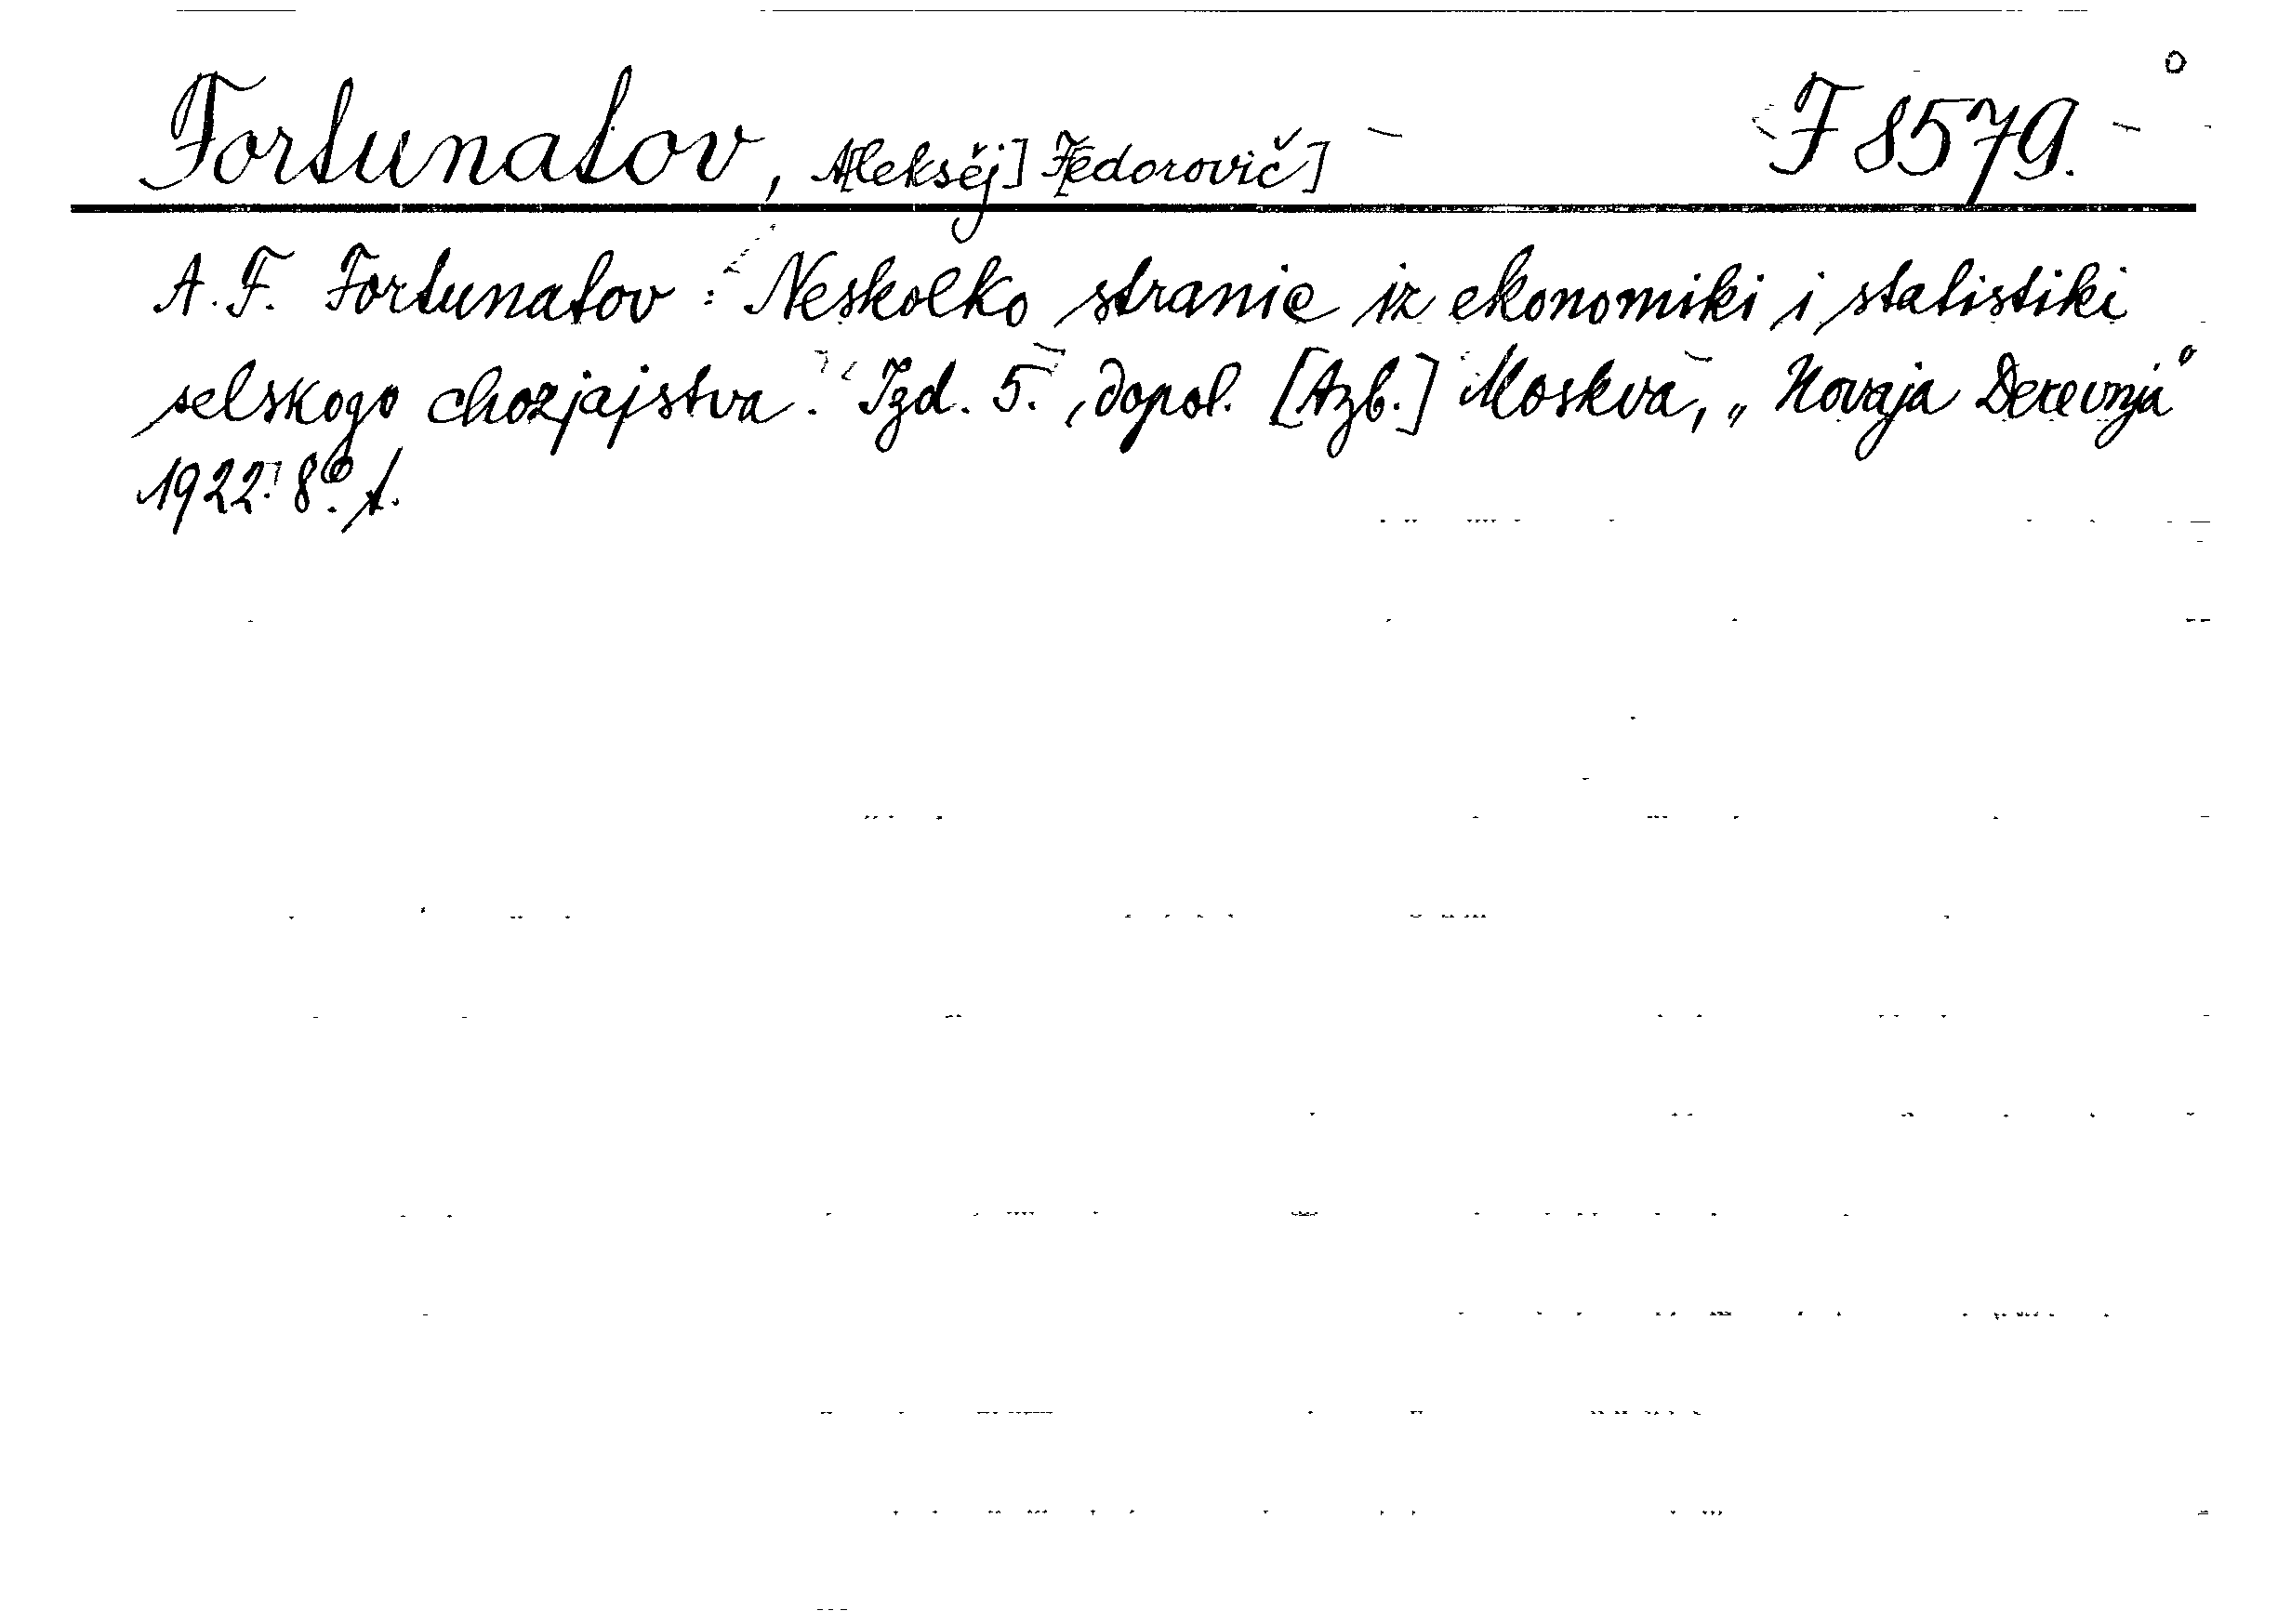 Fortunatov, A[leksěj] F[edorovič] F 8579.
A. F. Fortunatov: Neskolko stranic iz ekonomiki i statistiki
selskogo chozjajstva. Izd. 5., dopol. [Azb.] Moskva, „Novaja Derevnja"
1922. 8°.